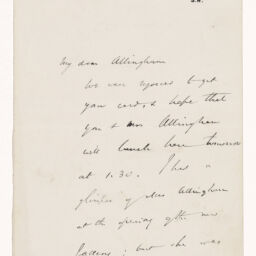 My dear Allingham
We were rejoiced to get
your card, & hope that
you & Mrs Allingham
will lunch here tomorrow
at 1.30. I had a
glimpse of Mrs Allingham
at the opening of the new
; but she was